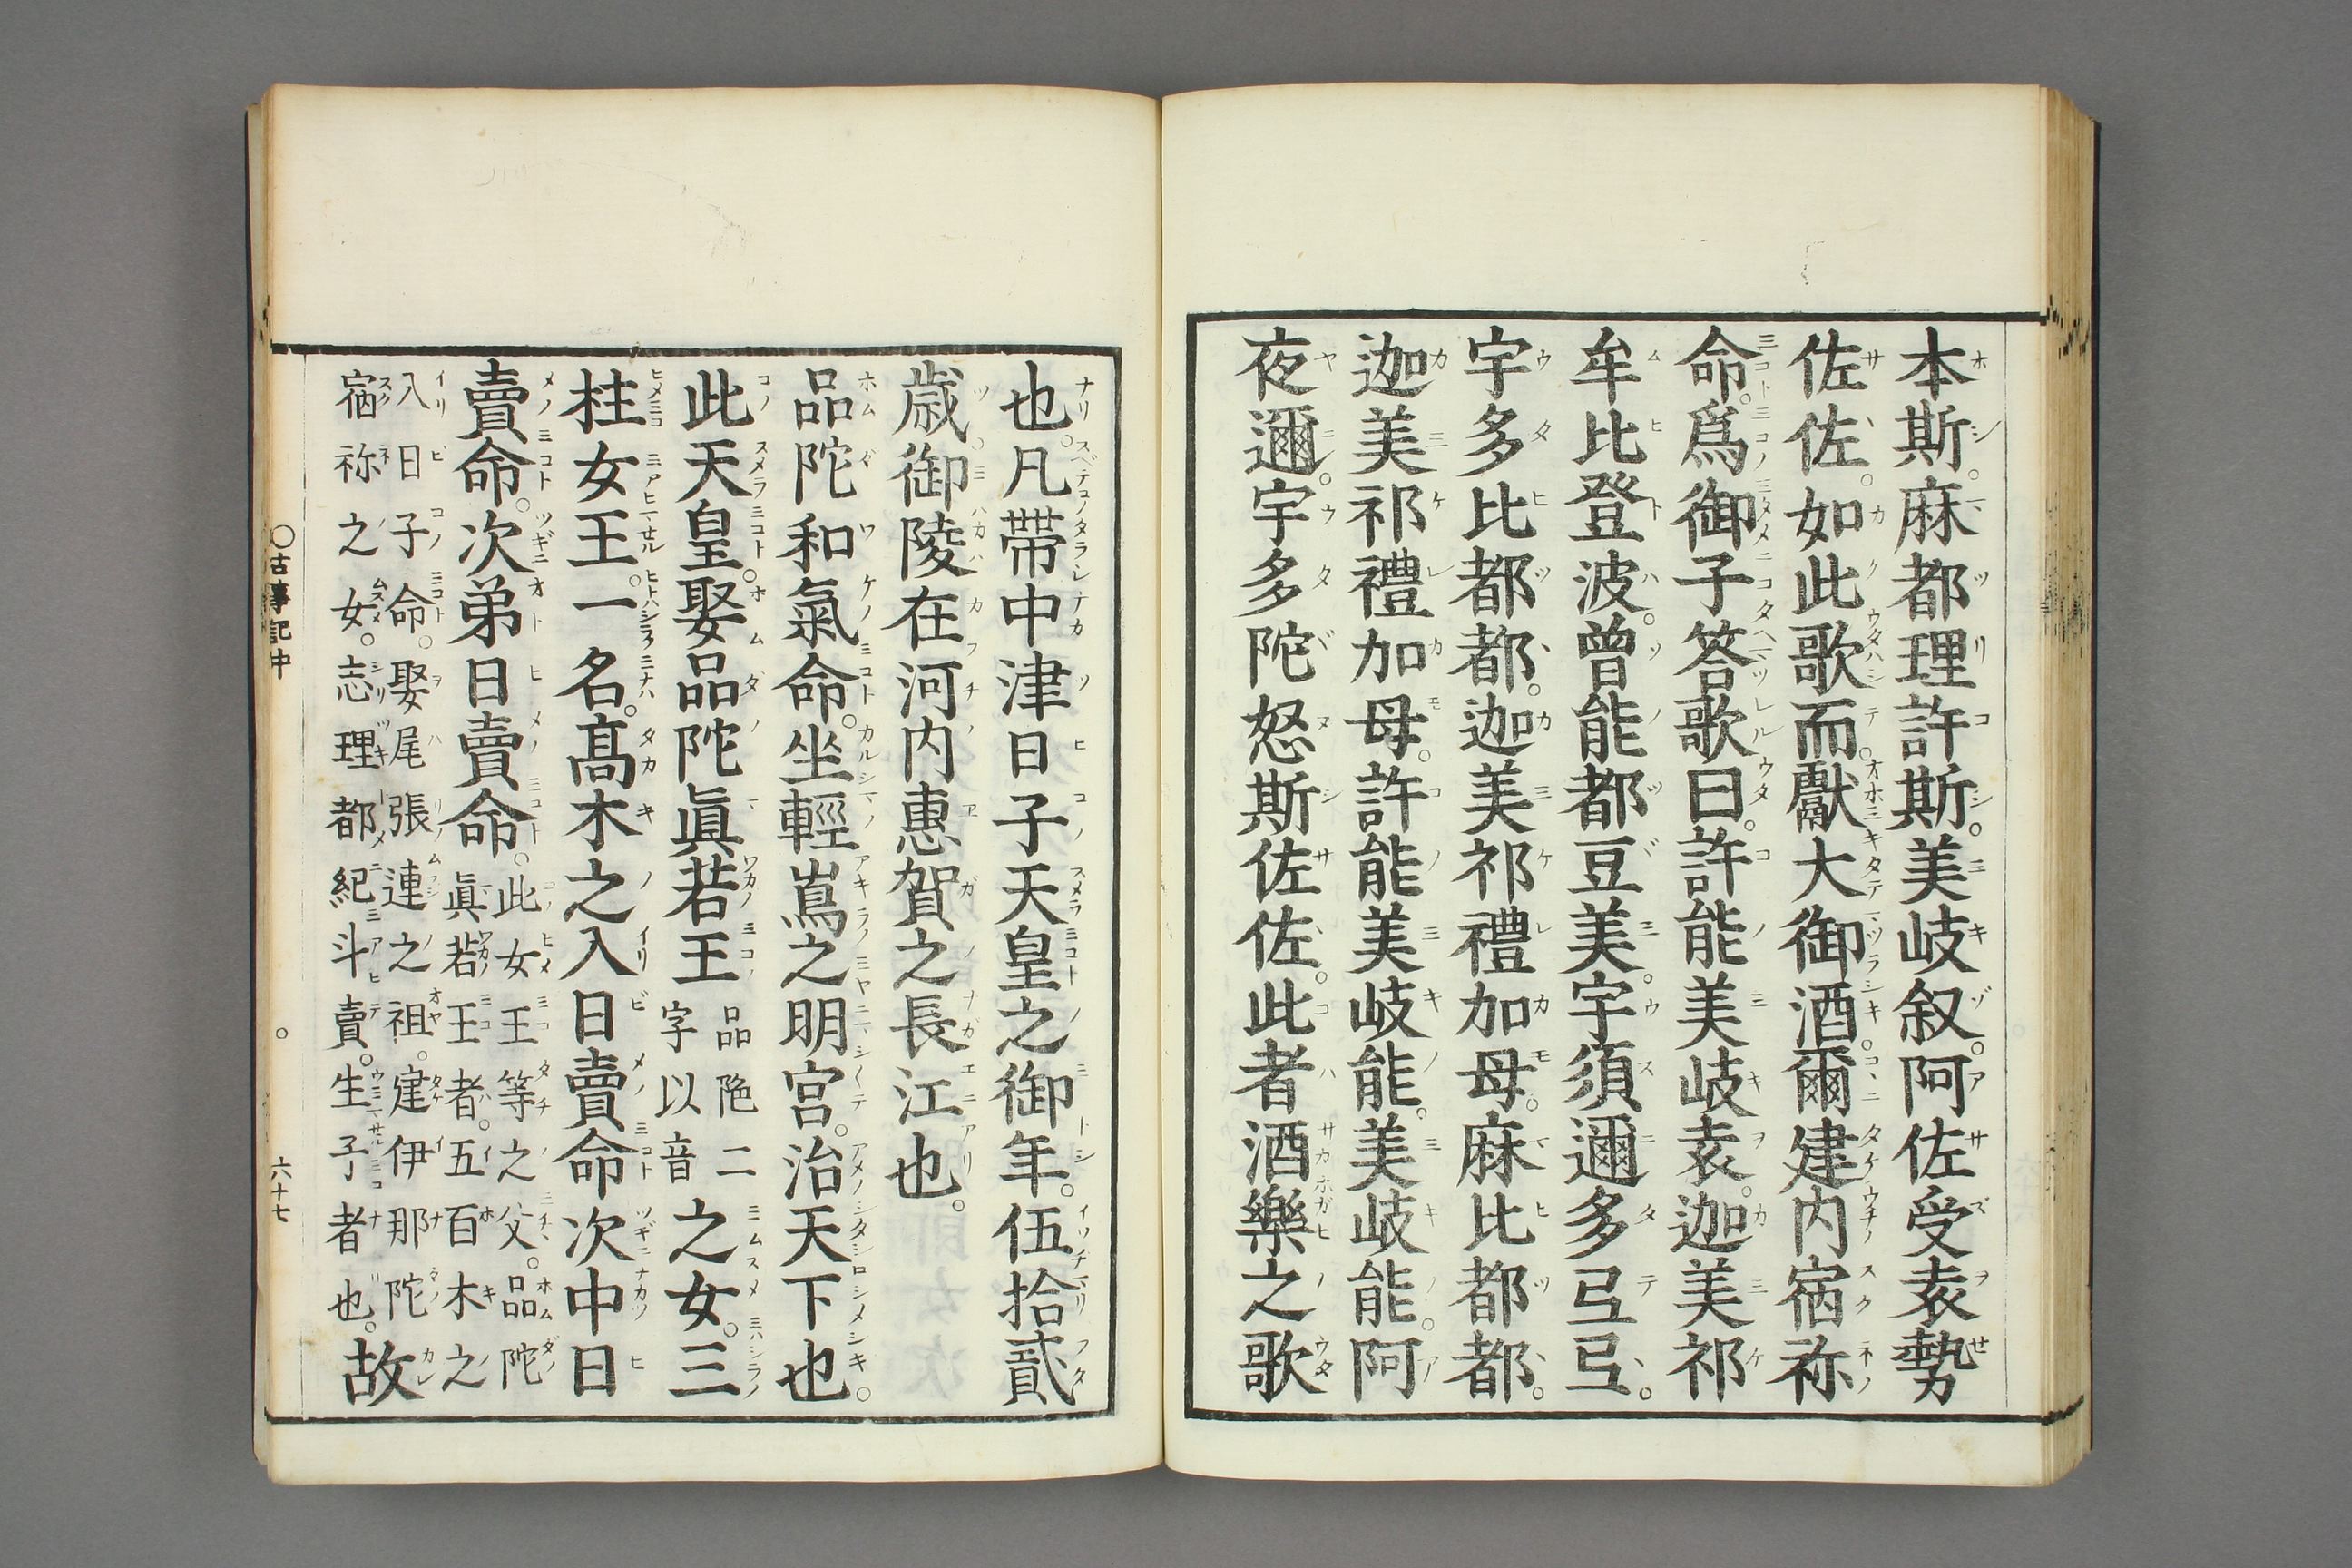 本斯。麻都理許斯。美岐叙。阿佐受袁勢
佐佐。如此歌而。獻大御酒。爾建内宿祢
命。爲御子答歌曰。許能美岐袁。迦美祁
牟比登波。曾能都豆美。宇須邇多弖弖。
宇多比都都。迦美祁禮加母。麻比都都。
迦美祁禮加母。許能美岐能。美岐能。阿
夜邇。宇多陀怒斯佐佐。此者酒樂之歌
也。凡帶中津日子天皇之御年。伍拾貳
歳。御陵在河内惠賀之長江也。
品陀和氣命。坐輕嶌之明宮。治天下也。
此天皇。娶品陀眞若王
品陀二
字以音
之女。三
柱女王。一名。高木之入日賣命次中日
賣命。次弟日賣命。
此女王等之父。品陀
眞若王者。五百木之
入日子命。娶尾張連之祖。建伊那陀
宿祢之女。志理都紀斗賣。生子者也。
故
○古事記中
六十七